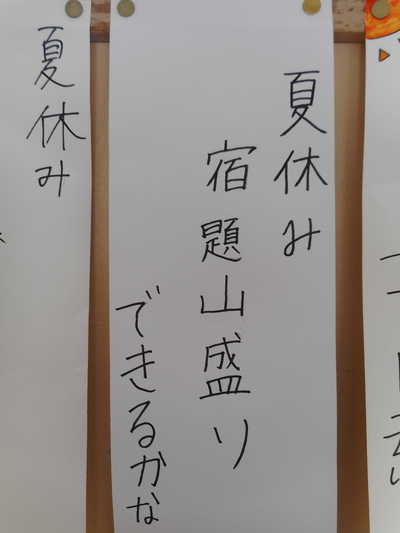 夏休み
宿題山盛り
できるかな
夏休み